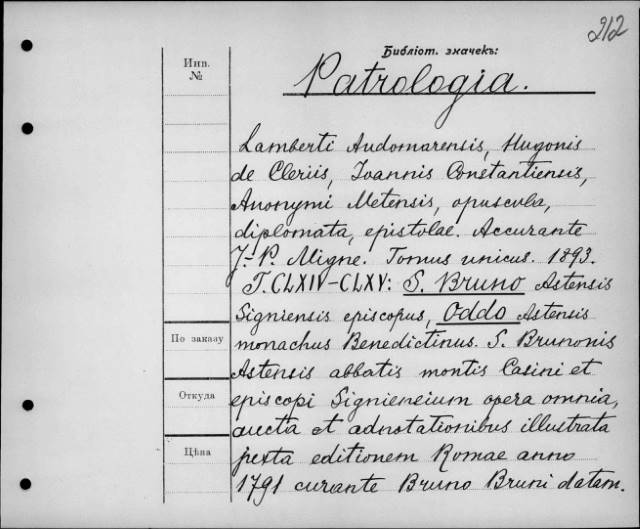 212
Библіот. значекъ:
Инв.
№
Patrologia.
Lamberti Audomarensis, Hugonis
de Cleriis, Ioannis Constantiensis,
Anonymi Metensis, opuscula,
diplomata, epistolae. Accurante
J.-P. Migne. Tomus unicus. 1893.
T. CLXIV–CLXV: S. Bruno Astensis
Signiensis episcopus, Oddo Astensis
По заказу
monachus Benedictinus. S. Brunonis
Astensis abbatis montis Casini et
Откуда
episcopi Signiensium opera omnia,
aucta et adnotationibus illustrata
Цѣна
juxta editionem Romae anno
1791 curante Bruno Bruni datam.